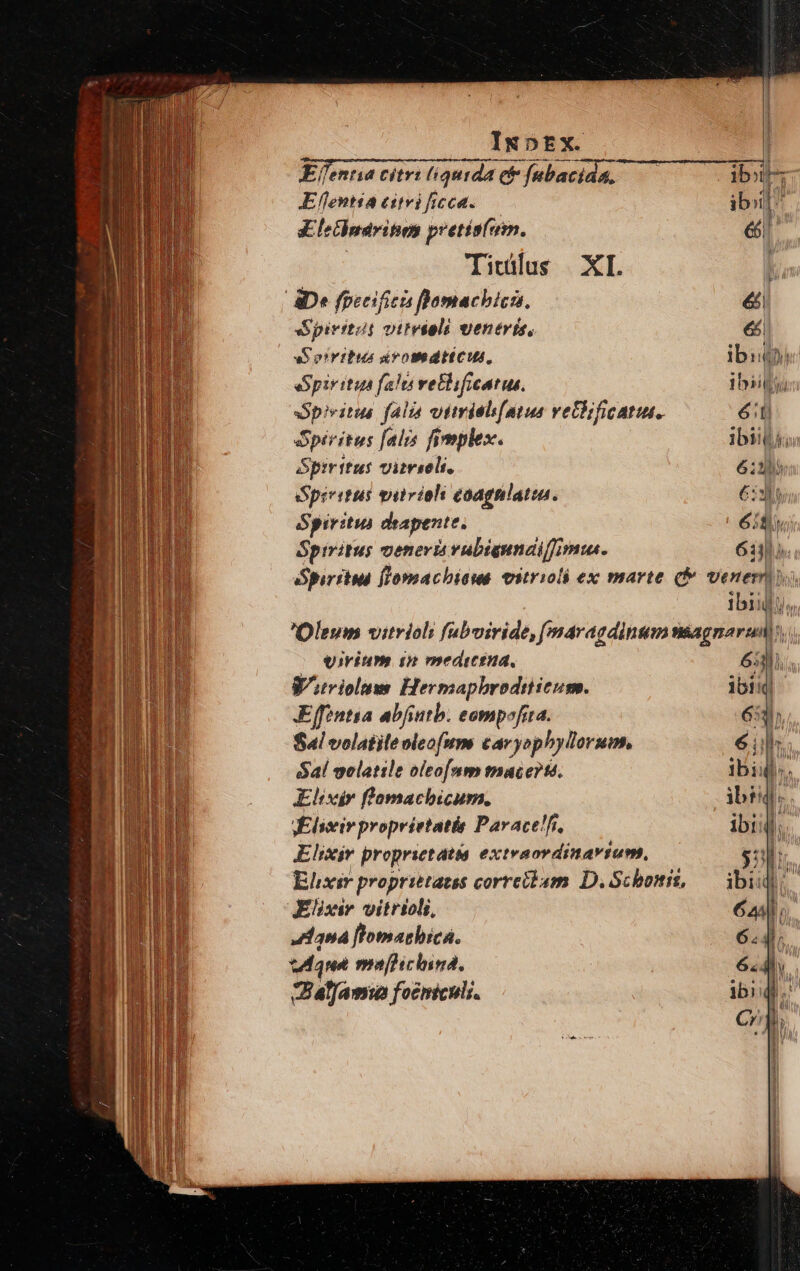 INDEX.
Eſſentia citri liquida & ſubacida, ibi
Eſſentia citri ſicca. ibi
Electuarium pretioſum. 6
Titulus XI.
De ſpecificis ſtomachicis. 6
Spiritus vitrioli veneris, 6
Spiritus aromaticus. ibi
Spiritus ſalis rectificatus. ibi
Spiritus ſalis vitrioliſatus rectificatus. 6
Spiritus ſalis ſimplex. ibi
Spiritus vitrioli, 6
Spiritus vitrioli coagulatus. 6
Spiritus diapente. 6
Spiritus veneris rubicundiſſimus. 6
Spiritus ſtomachicus vitrioli ex marte & vener
ibi
Oleum vitrioli ſubviride, ſmaragdinum magnarum
virium in medicina. 6
Vitriolum Hermaphroditicum. ibi
Eſſentia abſinth. compoſita. 6
Sal volatile oleoſum caryophyllorum, 6
Sal volatile oleoſum maceris. ibi
Elixir ſtomachicum, ibi
Elixir proprietatis Paracelſi, ibi
Elixir proprietatis extraordinarium,
Elixir proprietatis correctum D. Schottii, ibi
Elixir vitrioli, 6
Aqua ſtomachica. 6
Aqua maſtichina. 6
Balſamus foeniculi. ibi